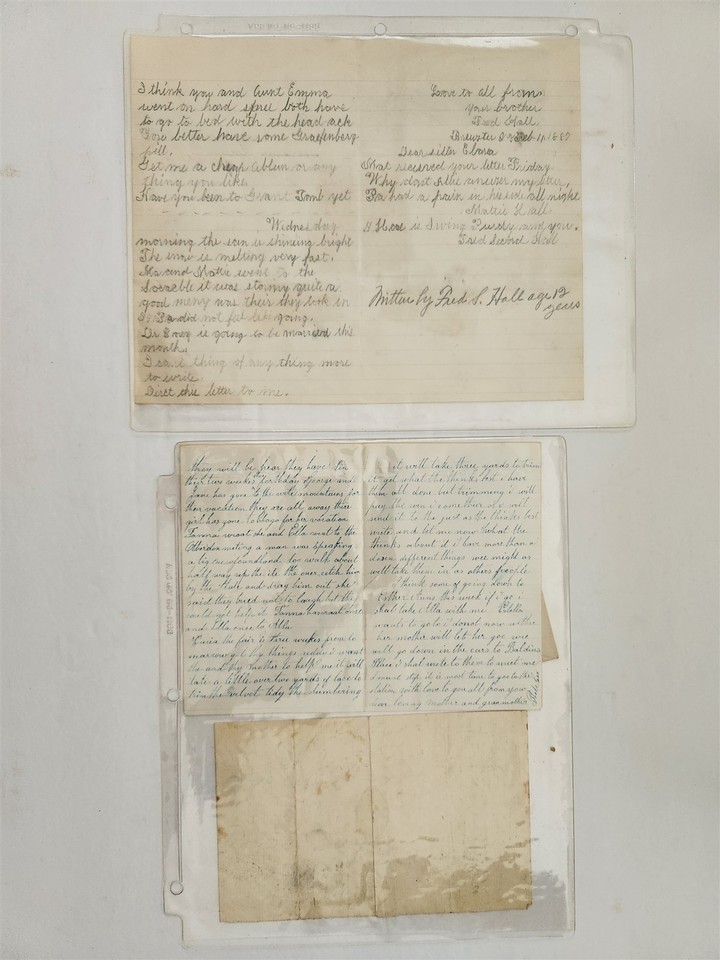 I think you and Aunt Emma
went on hard spree both have
to go to bed with the head ack
You better have some Graefenberg
pill.
Get me a cheap ablum or any
thing you like
Have you been to Grant Tomb yet
Wednesday
morning the sun is shineing bright
The snow is melting very fast.
Ma and Matie went to the
Soceable it was stormy quite a
good meny was their they took in
Pa did not feel like going.
Dr is going to be married this
month.
I cant thing of any thing more
to write
Direct this letter to me.
Love to all from
your brother
Fred Hall.
Brewster
Dear sister
received your letter Friday
Why dont she answer my letter,
Pa had a pain in his side all night
Mattie Hall
is Irving Purdy and you.
Fred Hall
Written by Fred S. Hall age 12
years
they will be hear they have
their two weeks George and
has gone to the white mountains for
their vacation they are all away their
girl has gone to for her vacation
she and Ella went to the
meting a man was speaking
a big newfoundland dog walk about
half way up the ile the one catch him
by the and drag him out she
said they tried not to laugh but the
could not help it once
and Ella once to Alla
the fair is three weekes from to
morrow get my things reday i want
the and to help me it will
take a little over two yards of lace to
trim the velvet tidy the slumbering
it will take three yards to trim
it get what the thinks best i have
them all done but trimming i will
pay the wen i come home or i will
send it to the just as the thinks best
write and let me now what the
thinks about it i have more than a
dozen different things wee might as
well take them in as others people
i think some of going down to
Anns this week if i go i
shal take Alla with me Edella
wants to go to i donot now wether
her mother will let her goe wee
will go down in the cars to Baldins
Place i shal write to them to meet me
i must stop it is most time to goe to the
station with love to you all from your
dear loving mother and grandmother